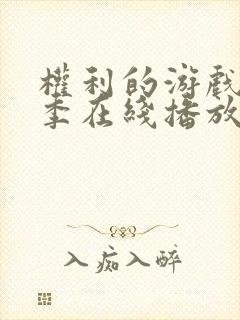 權利的游戲
季在綫播放
入痴入醉